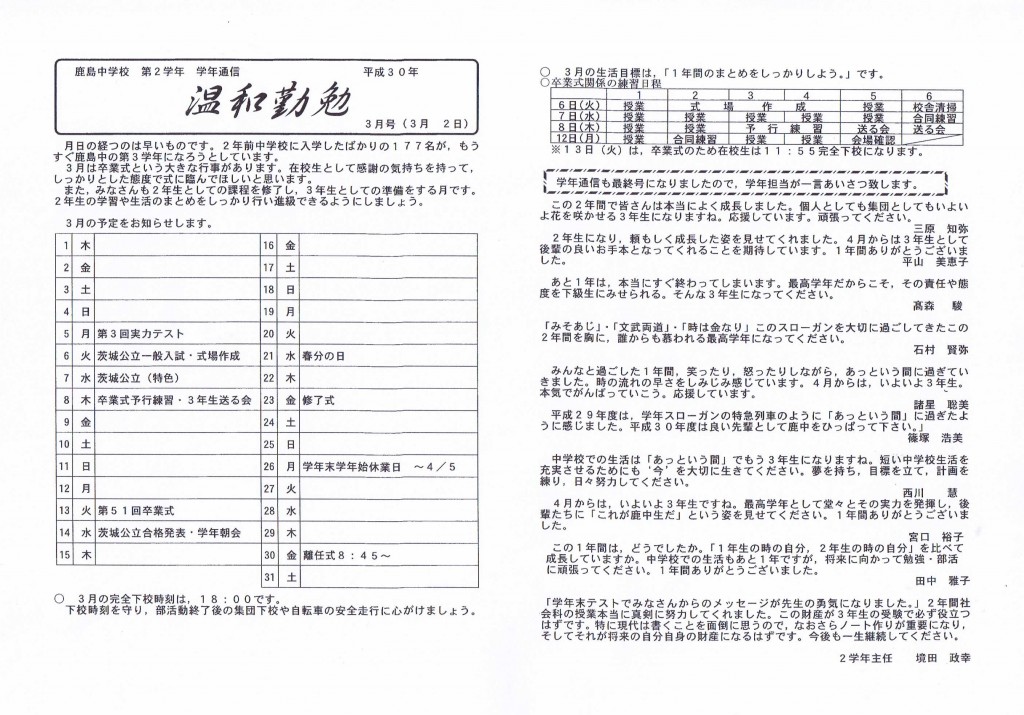 鹿島中学校 第２学年 学年通信 平成３０年
温和勤勉
３月号（３月 ２日）
月日の経つのは早いものです。２年前中学校に入学したばかりの１７７名が，もう
すぐ鹿島中の第３学年になろうとしています。
３月は卒業式という大きな行事があります。在校生として感謝の気持ちを持って，
しっかりとした態度で式に臨んでほしいと思います。
また，みなさんも２年生としての課程を修了し，３年生としての準備をする月です。
２年生の学習や生活のまとめをしっかり行い進級できるようにしましょう。
３月の予定をお知らせします。
1 木 16 金
2 金 17 土
3 土 18 日
4 日 19 月
5 月 第３回実力テスト 20 火
6 火 茨城公立一般入試・式場作成 21 水 春分の日
7 水 茨城公立（特色） 22 木
8 木 卒業式予行練習・３年生送る会 23 金 修了式
9 金 24 土
10 土 25 日
11 日 26 月 学年末学年始休業日 ～４／５
12 月 27 火
13 火 第５１回卒業式 28 水
14 水 茨城公立合格発表・学年朝会 29 木
15 木 30 金 離任式８：４５～
31 土
○ ３月の完全下校時刻は，１８：００です。
下校時刻を守り，部活動終了後の集団下校や自転車の安全走行に心がけましょう。
○ ３月の生活目標は，「１年間のまとめをしっかりしよう。」です。
○卒業式関係の練習日程
1 2 3 4 5 6
６日(火) 授業 式 場 作 成 授業 校舎清掃
７日(水) 授業 授業 授業 授業 授業 合同練習
８日(木) 授業 授業 予 行 練 習 送る会 送る会
12日(月) 授業 合同練習 授業 授業 会場確認
※１３日（火）は，卒業式のため在校生は１１：５５完全下校になります。
学年通信も最終号になりましたので，学年担当が一言あいさつ致します。
この２年間で皆さんは本当によく成長しました。個人としても集団としてもいよい
よ花を咲かせる３年生になりますね。応援しています。頑張ってください。
三原 知弥
２年生になり，頼もしく成長した姿を見せてくれました。４月からは３年生として
後輩の良いお手本となってくれることを期待しています。１年間ありがとうございま
した。 平山 美恵子
あと１年は，本当にすぐ終わってしまいます。最高学年だからこそ，その責任や態
度を下級生にみせられる。そんな３年生になってください。
髙森 駿
「みそあじ」・「文武両道」・「時は金なり」このスローガンを大切に過ごしてきたこの
２年間を胸に，誰からも慕われる最高学年になってください。
石村 賢弥
みんなと過ごした１年間，笑ったり，怒ったりしながら，あっという間に過ぎてい
きました。時の流れの早さをしみじみ感じています。４月からは，いよいよ３年生。
本気でがんばっていこう。応援しています。
諸星 聡美
平成２９年度は，学年スローガンの特急列車のように「あっという間」に過ぎたよ
うに感じました。平成３０年度は良い先輩として鹿中をひっぱって下さい。」
篠塚 浩美
中学校での生活は「あっという間」でもう３年生になりますね。短い中学校生活を
充実させるためにも‘今’を大切に生きてください。夢を持ち，目標を立て，計画を
練り，日々努力してください。
西川 慧
４月からは，いよいよ３年生ですね。最高学年として堂々とその実力を発揮し，後
輩たちに「これが鹿中生だ」という姿を見せてください。１年間ありがとうございま
した。
宮口 裕子
この１年間は，どうでしたか。「１年生の時の自分，２年生の時の自分」を比べて
成長していますか。中学校での生活もあと１年ですが，将来に向かって勉強・部活
に頑張ってください。１年間ありがとうございました。
田中 雅子
「学年末テストでみなさんからのメッセージが先生の勇気になりました。」２年間社
会科の授業本当に真剣に努力してくれました。この財産が３年生の受験で必ず役立つ
はずです。特に現代は書くことを面倒に思うので，なおさらノート作りが重要になり，
そしてそれが将来の自分自身の財産になるはずです。今後も一生継続してください。
２学年主任 境田 政幸